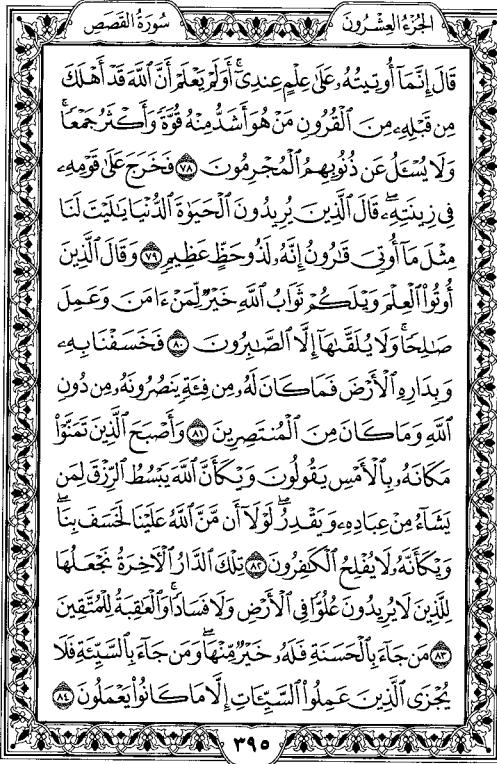 الجُزْءُ العِشْرُونَ
سُورَةُ القَصَصِ
قَالَ إِنَّمَآ أُوتِيتُهُۥ عَلَىٰ عِلْمٍ عِندِىٓ ۚ أَوَلَمْ يَعْلَمْ أَنَّ ٱللَّهَ قَدْ أَهْلَكَ
مِن قَبْلِهِۦ مِنَ ٱلْقُرُونِ مَنْ هُوَ أَشَدُّ مِنْهُ قُوَّةً وَأَكْثَرُ جَمْعًا ۚ
وَلَا يُسْـَٔلُ عَن ذُنُوبِهِمُ ٱلْمُجْرِمُونَ ٧٨ فَخَرَجَ عَلَىٰ قَوْمِهِۦ
فِى زِينَتِهِۦ ۖ قَالَ ٱلَّذِينَ يُرِيدُونَ ٱلْحَيَوٰةَ ٱلدُّنْيَا يَـٰلَيْتَ لَنَا
مِثْلَ مَآ أُوتِىَ قَـٰرُونُ إِنَّهُۥ لَذُو حَظٍّ عَظِيمٍ ٧٩ وَقَالَ ٱلَّذِينَ
أُوتُوا۟ ٱلْعِلْمَ وَيْلَكُمْ ثَوَابُ ٱللَّهِ خَيْرٌ لِّمَنْ ءَامَنَ وَعَمِلَ
صَـٰلِحًا ۚ وَلَا يُلَقَّىٰهَآ إِلَّا ٱلصَّـٰبِرُونَ ٨٠ فَخَسَفْنَا بِهِۦ
وَبِدَارِهِ ٱلْأَرْضَ فَمَا كَانَ لَهُۥ مِن فِئَةٍ يَنصُرُونَهُۥ مِن دُونِ
ٱللَّهِ وَمَا كَانَ مِنَ ٱلْمُنتَصِرِينَ ٨١ وَأَصْبَحَ ٱلَّذِينَ تَمَنَّوْا۟
مَكَانَهُۥ بِٱلْأَمْسِ يَقُولُونَ وَيْكَأَنَّ ٱللَّهَ يَبْسُطُ ٱلرِّزْقَ لِمَن
يَشَآءُ مِنْ عِبَادِهِۦ وَيَقْدِرُ ۖ لَوْلَآ أَن مَّنَّ ٱللَّهُ عَلَيْنَا لَخَسَفَ بِنَا ۖ
وَيْكَأَنَّهُۥ لَا يُفْلِحُ ٱلْكَـٰفِرُونَ ٨٢ تِلْكَ ٱلدَّارُ ٱلْـَٔاخِرَةُ نَجْعَلُهَا
لِلَّذِينَ لَا يُرِيدُونَ عُلُوًّا فِى ٱلْأَرْضِ وَلَا فَسَادًا ۚ وَٱلْعَـٰقِبَةُ لِلْمُتَّقِينَ
٨٣ مَن جَآءَ بِٱلْحَسَنَةِ فَلَهُۥ خَيْرٌ مِّنْهَا ۖ وَمَن جَآءَ بِٱلسَّيِّئَةِ فَلَا
يُجْزَى ٱلَّذِينَ عَمِلُوا۟ ٱلسَّيِّـَٔاتِ إِلَّا مَا كَانُوا۟ يَعْمَلُونَ ٨٤
٣٩٥